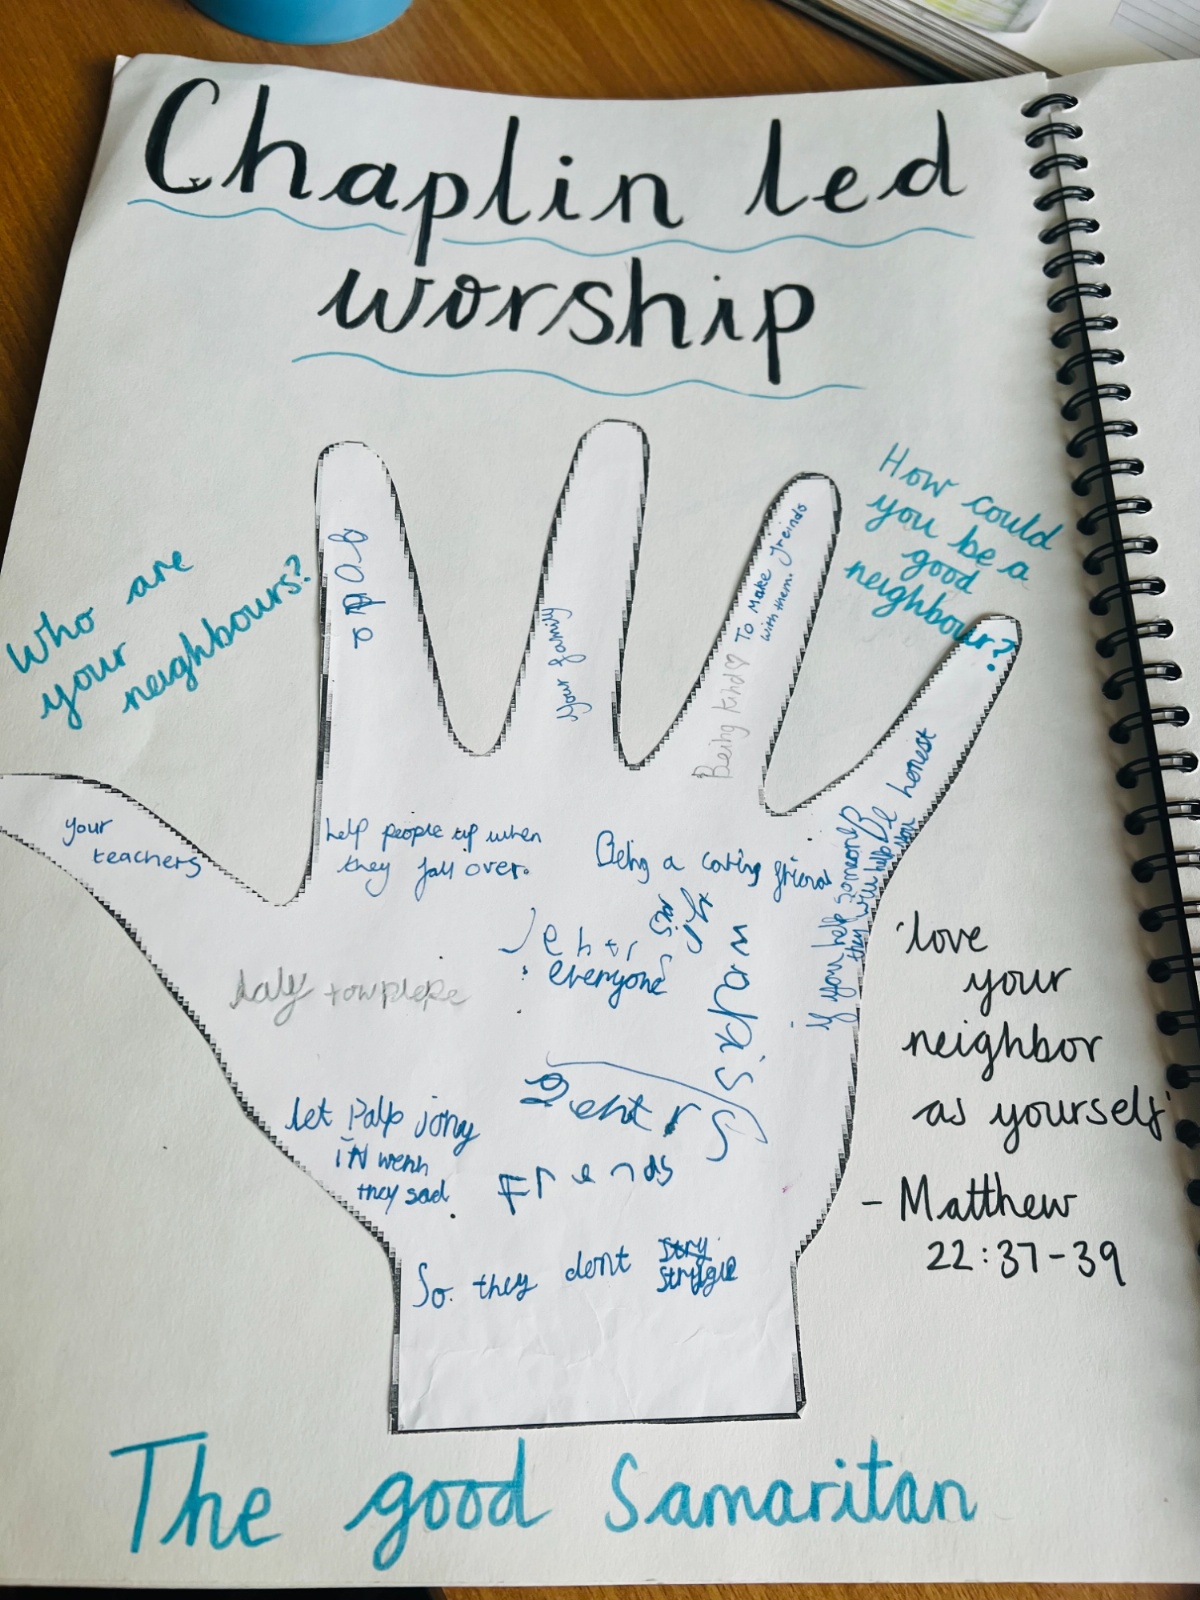 Chaplin led
worship
Who are
your
neighbours?
How could
you be a
good
neighbour?
your
teachers
your family
Being kind♡ To Make freinds
with them.
Be honest
help people up when
they fall over.
Being a caring friend
if you help someone
they will help you
everyone
let Palp jony
iN wenh
they sad.
Frends
So. they dont
'love
your
neighbor
as yourself'
- Matthew
22:37-39
The good Samaritan